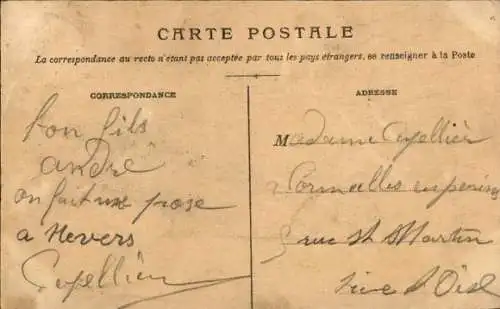 CARTE POSTALE
La correspondance au recto n'étant pas acceptée par tous les pays étrangers, se renseigner à la Poste
CORRESPONDANCE
bon fils
andré
on fait une pose
a Nevers
ADRESSE
Madame
Cormeilles en parisis
rue St Martin
Seine & Oise